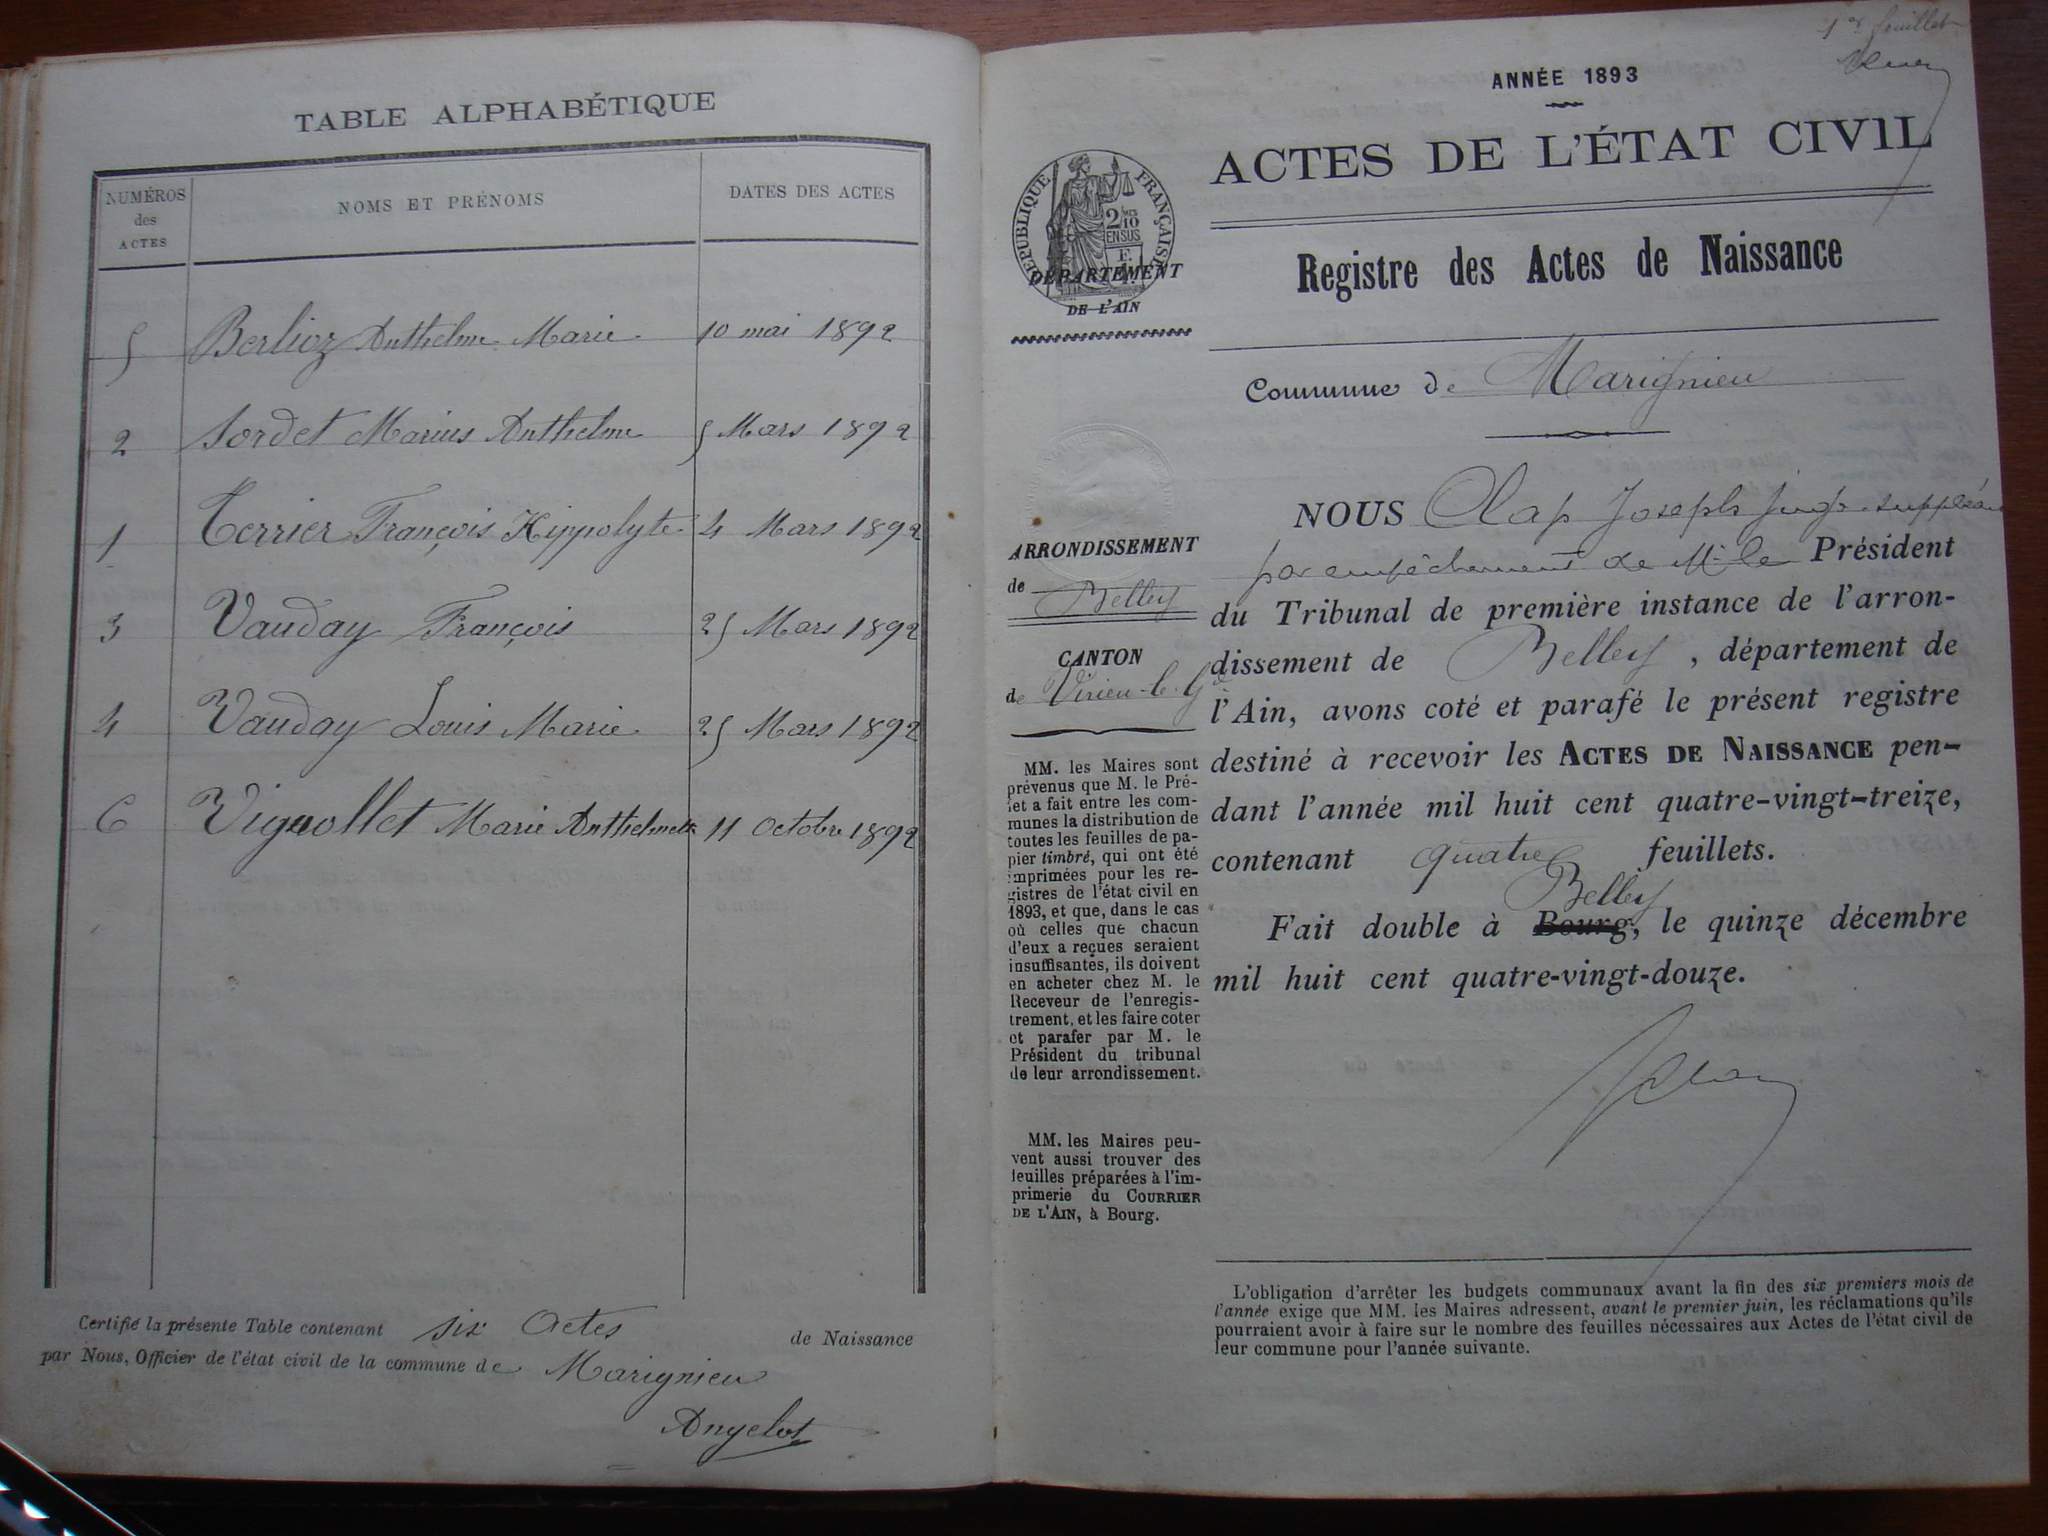 TABLE ALPHABÉTIQUE
NUMÉROS
des
ACTES
NOMS ET PRÉNOMS
DATES DES ACTES
5 Berlioz Anthelme Marie 10 mai 1892
2 Sordet Marius Anthelme 5 Mars 1892
1 Terrier François Hippolyte 4 Mars 1892
3 Vauday François 25 Mars 1892
4 Vauday Louis Marie 25 Mars 1892
6 Vignollet Marie Anthelmette 11 Octobre 1892
Certifié la présente Table contenant six Actes de Naissance
par Nous, Officier de l'état civil de la commune de Marignieu
Angelot
1er feuillet
ANNÉE 1893
ACTES DE L'ÉTAT CIVIL
Registre des Actes de Naissance
RÉPUBLIQUE FRANÇAISE
2/10
EN SUS
DÉPARTEMENT
DE L'AIN
Commune de Marignieu
ARRONDISSEMENT
de Belley
CANTON
de Virieu-le-Gd
MM. les Maires sont
prévenus que M. le Pré-
fet a fait entre les com-
munes la distribution de
toutes les feuilles de pa-
pier timbré, qui ont été
imprimées pour les re-
gistres de l'état civil en
1893, et que, dans le cas
où celles que chacun
d'eux a reçues seraient
insuffisantes, ils doivent
en acheter chez M. le
Receveur de l'enregis-
trement, et les faire coter
et parafer par M. le
Président du tribunal
de leur arrondissement.
MM. les Maires peu-
vent aussi trouver des
feuilles préparées à l'im-
primerie du COURRIER
DE L'AIN, à Bourg.
NOUS Clap Joseph juge suppléant
par empêchement de Mr le Président
du Tribunal de première instance de l'arron-
dissement de Belley, département de
l'Ain, avons coté et parafé le présent registre
destiné à recevoir les ACTES DE NAISSANCE pen-
dant l'année mil huit cent quatre-vingt-treize,
contenant quatre feuillets.
Belley
Fait double à Bourg, le quinze décembre
mil huit cent quatre-vingt-douze.
L'obligation d'arrêter les budgets communaux avant la fin des six premiers mois de
l'année exige que MM. les Maires adressent, avant le premier juin, les réclamations qu'ils
pourraient avoir à faire sur le nombre des feuilles nécessaires aux Actes de l'état civil de
leur commune pour l'année suivante.